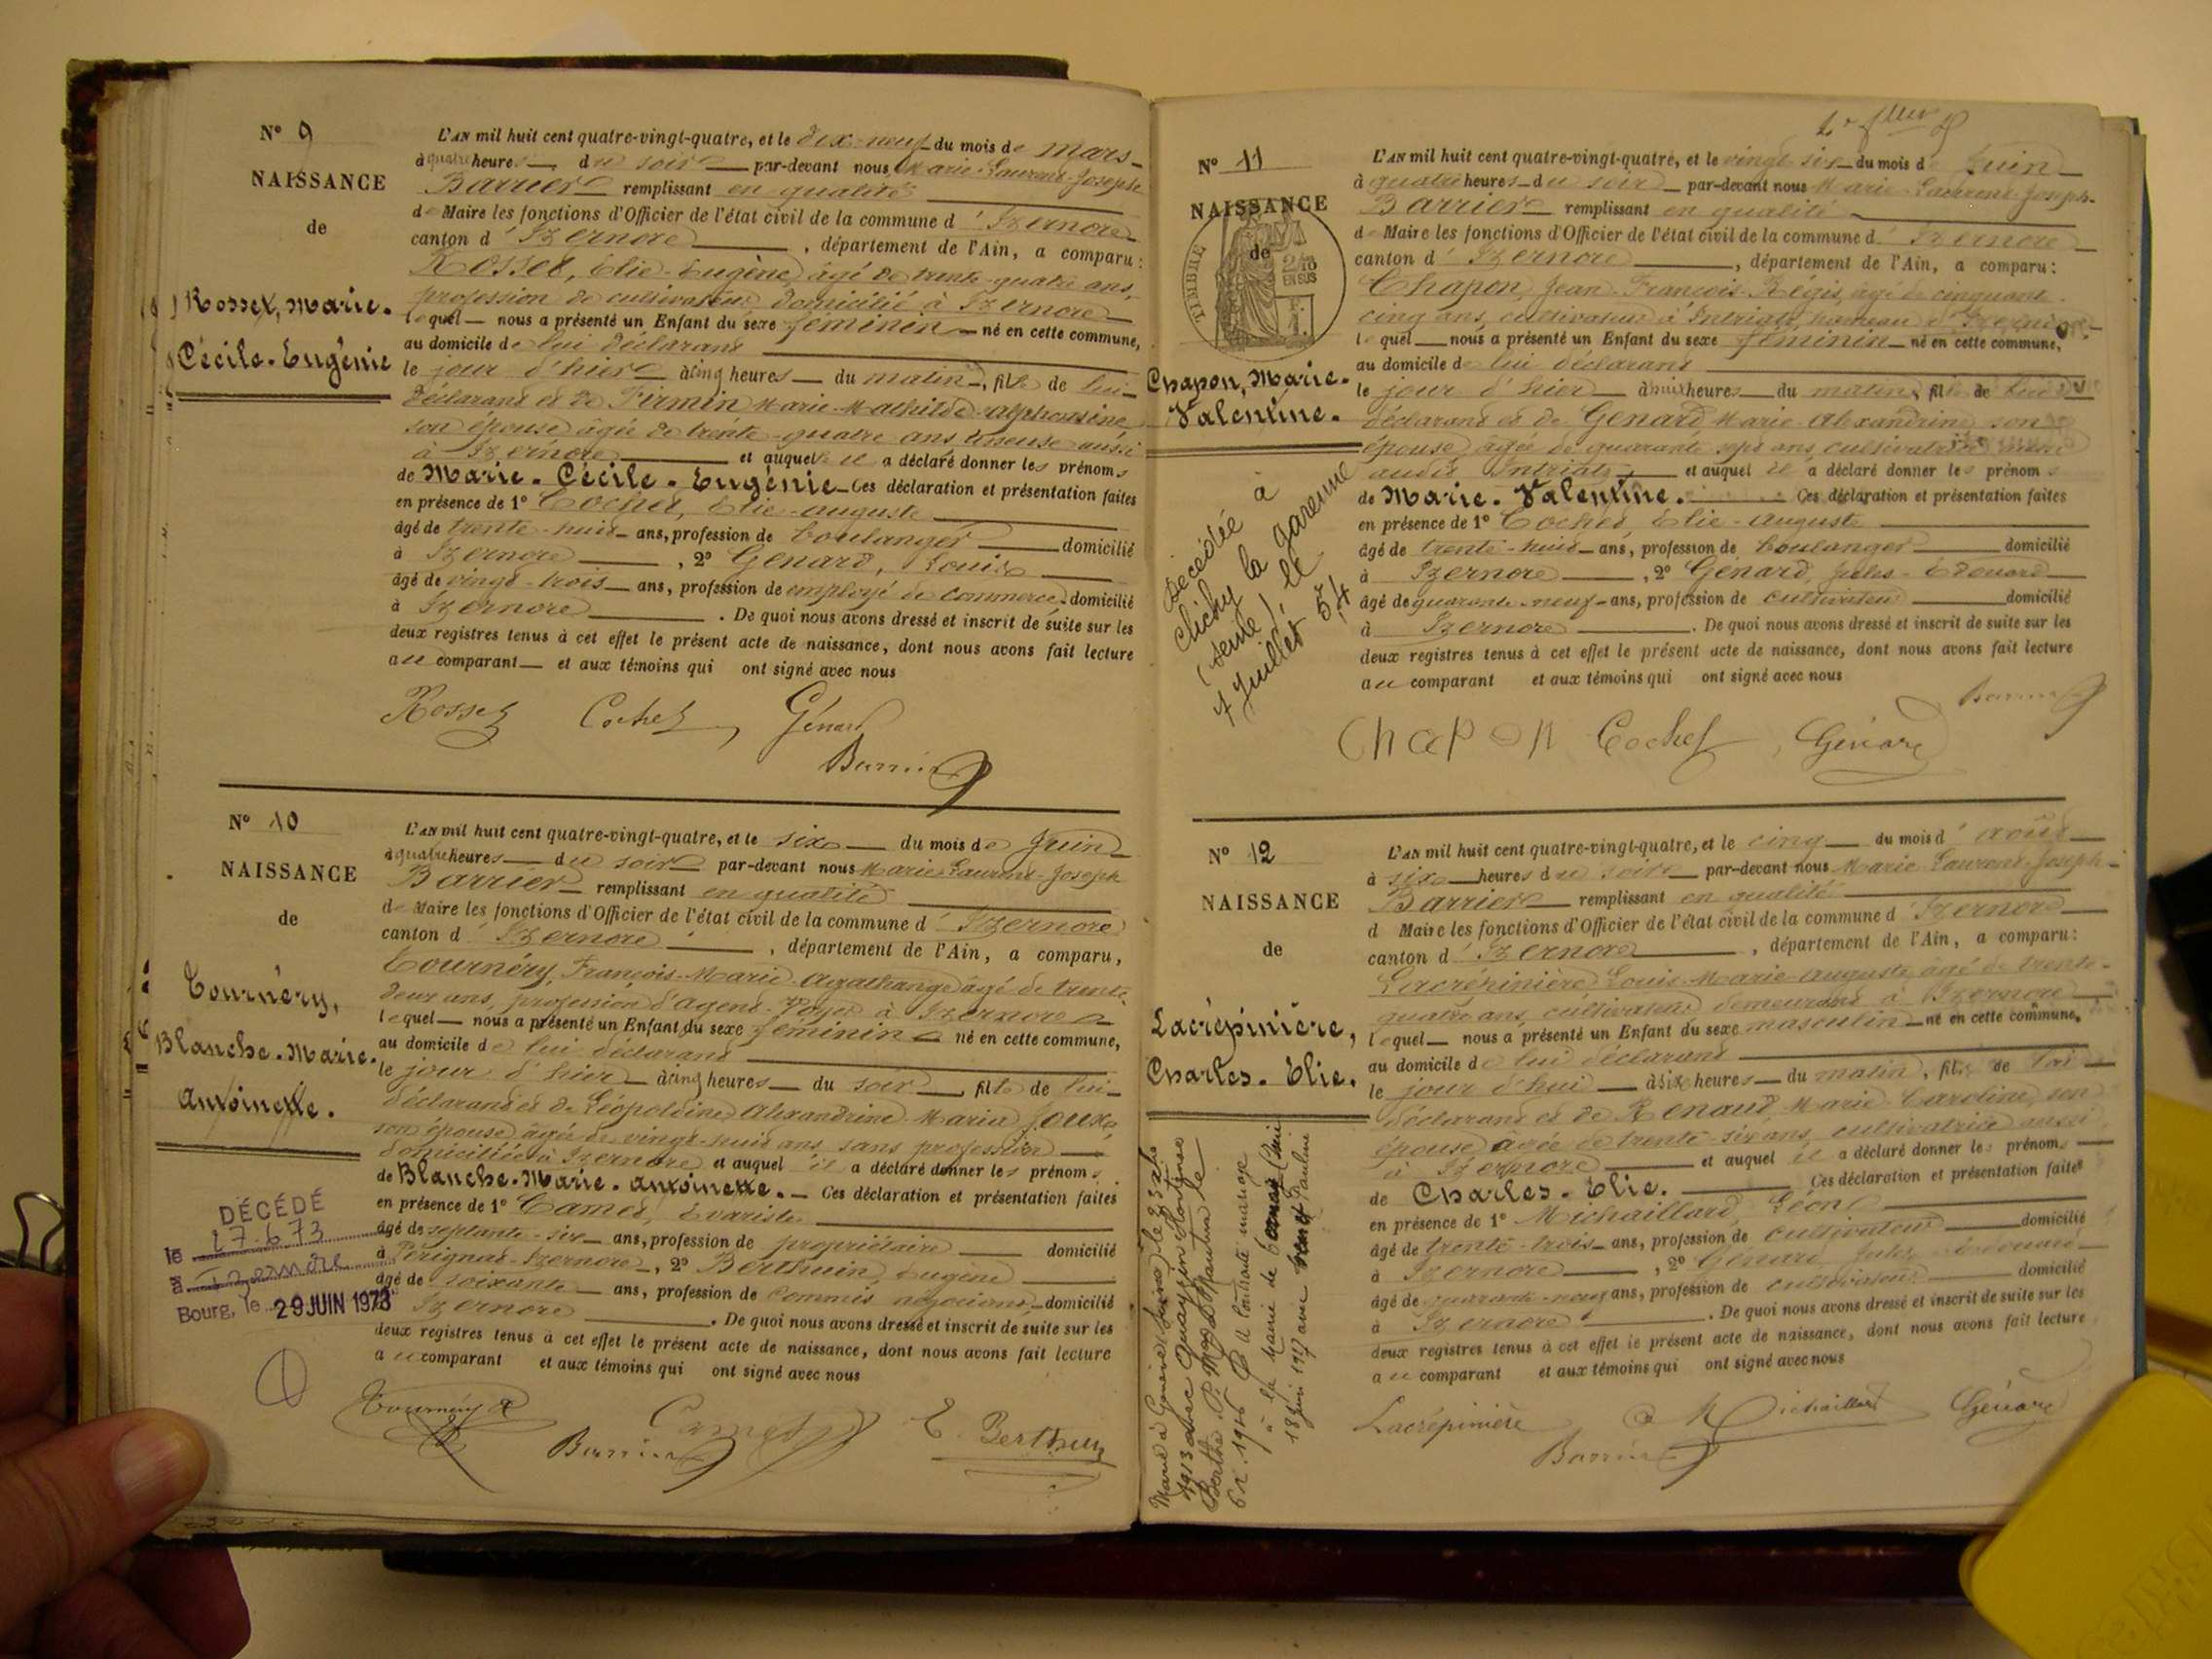 N° 9
NAISSANCE
de
Rosset, Marie-
Cécile-Eugénie
L'AN mil huit cent quatre-vingt-quatre, et le dix-neuf du mois de Mars
à quatre heures du soir par-devant nous Marie-Laurent-Joseph
Barrier remplissant en qualité
de Maire les fonctions d'Officier de l'état civil de la commune d'Izernore
canton d'Izernore, département de l'Ain, a comparu:
Rosset, Elie-Eugène, âgé de trente-quatre ans,
profession de cultivateur domicilié à Izernore
lequel nous a présenté un Enfant du sexe féminin né en cette commune,
au domicile de lui déclarant
le jour d'hier à cinq heures du matin, fille de lui
déclarant et de Firmin Marie-Mathilde-Alphonsine
son épouse âgée de trente-quatre ans aussi
à Izernore et auquel il a déclaré donner les prénoms
de Marie-Cécile-Eugénie. Ces déclaration et présentation faites
en présence de 1° Cochet, Elie-Auguste
âgé de trente-huit ans, profession de boulanger domicilié
à Izernore, 2° Genard, Louis
âgé de vingt-trois ans, profession de employé de commerce domicilié
à Izernore. De quoi nous avons dressé et inscrit de suite sur les
deux registres tenus à cet effet le présent acte de naissance, dont nous avons fait lecture
au comparant et aux témoins qui ont signé avec nous
Rosset Cochet Génard
Barrier
N° 10
NAISSANCE
de
Tournéry,
Blanche-Marie-
Antoinette.
DÉCÉDÉ
le 27.6.73
à Izernore
Bourg, le 29 JUIN 1973
L'AN mil huit cent quatre-vingt-quatre, et le six du mois de Juin
à quatre heures du soir par-devant nous Marie-Laurent-Joseph
Barrier remplissant en qualité
de Maire les fonctions d'Officier de l'état civil de la commune d'Izernore
canton d'Izernore, département de l'Ain, a comparu,
Tournéry, François-Marie-Agathange âgé de trente-
deux ans, profession d'agent-voyer à Izernore
lequel nous a présenté un Enfant du sexe féminin né en cette commune,
au domicile de lui déclarant
le jour d'hier à cinq heures du soir, fille de lui
déclarant et de Léopoldine Alexandrine Maria Joux,
son épouse âgée de vingt-huit ans, sans profession
domiciliée à Izernore et auquel il a déclaré donner les prénoms
de Blanche-Marie-Antoinette. Ces déclaration et présentation faites
en présence de 1° Camet, Evariste
âgé de septante-six ans, profession de propriétaire domicilié
à Pérignat-Izernore, 2° Berthuin, Eugène
âgé de soixante ans, profession de commis négociant domicilié
Izernore. De quoi nous avons dressé et inscrit de suite sur les
deux registres tenus à cet effet le présent acte de naissance, dont nous avons fait lecture
au comparant et aux témoins qui ont signé avec nous
Tournéry Camet E. Berthuin
Barrier
N° 11
NAISSANCE
de
TIMBRE
2/10
EN SUS
Chapon, Marie-
Valentine.
Décédée à
Clichy la Garenne
(Seine), le
7 Juillet 54
L'AN mil huit cent quatre-vingt-quatre, et le vingt six du mois de Juin
à quatre heures du soir par-devant nous Marie-Laurent-Joseph-
Barrier remplissant en qualité
de Maire les fonctions d'Officier de l'état civil de la commune d'Izernore
canton d'Izernore, département de l'Ain, a comparu:
Chapon, Jean-François-Régis, âgé de cinquante-
cinq ans, cultivateur à Intriat, hameau d'Izernore
lequel nous a présenté un Enfant du sexe féminin né en cette commune,
au domicile de lui déclarant
le jour d'hier à huit heures du matin, fille de lui
déclarant et de Genard Marie-Alexandrine son
épouse âgée de quarante sept ans, cultivatrice
audit Intriat et auquel il a déclaré donner les prénoms
de Marie-Valentine. Ces déclaration et présentation faites
en présence de 1° Cochet, Elie-Auguste
âgé de trente-huit ans, profession de boulanger domicilié
à Izernore, 2° Genard, Jules-Edouard
âgé de quarante-neuf ans, profession de cultivateur domicilié
à Izernore. De quoi nous avons dressé et inscrit de suite sur les
deux registres tenus à cet effet le présent acte de naissance, dont nous avons fait lecture
au comparant et aux témoins qui ont signé avec nous
Barrier
Chapon Cochet Génard
N° 12
NAISSANCE
de
Lacrépinière,
Charles-Elie.
Marié à Genève (Suisse) le
1913 avec
Berthe
à la mairie de
18 Juin 1927 avec Pauline
L'AN mil huit cent quatre-vingt-quatre, et le cinq du mois d'août
à six heures du soir par-devant nous Marie-Laurent-Joseph-
Barrier remplissant en qualité
d Maire les fonctions d'Officier de l'état civil de la commune d'Izernore
canton d'Izernore, département de l'Ain, a comparu:
Lacrépinière Louis-Marie-Auguste, âgé de trente-
quatre ans, cultivateur demeurant à Izernore
lequel nous a présenté un Enfant du sexe masculin né en cette commune,
au domicile de lui déclarant
le jour d'hui à six heures du matin, fils de lui
déclarant et de Renaud, Marie Caroline, son
épouse âgée de trente-six ans, cultivatrice aussi
à Izernore et auquel il a déclaré donner les prénoms
de Charles-Elie. Ces déclaration et présentation faites
en présence de 1° Michaillard, Léon
âgé de trente-trois ans, profession de cultivateur domicilié
à Izernore, 2° Génard Jules Edouard
âgé de quarante-neuf ans, profession de cultivateur domicilié
à Izernore. De quoi nous avons dressé et inscrit de suite sur les
deux registres tenus à cet effet le présent acte de naissance, dont nous avons fait lecture
au comparant et aux témoins qui ont signé avec nous
Lacrépinière Michaillard Génard
Barrier